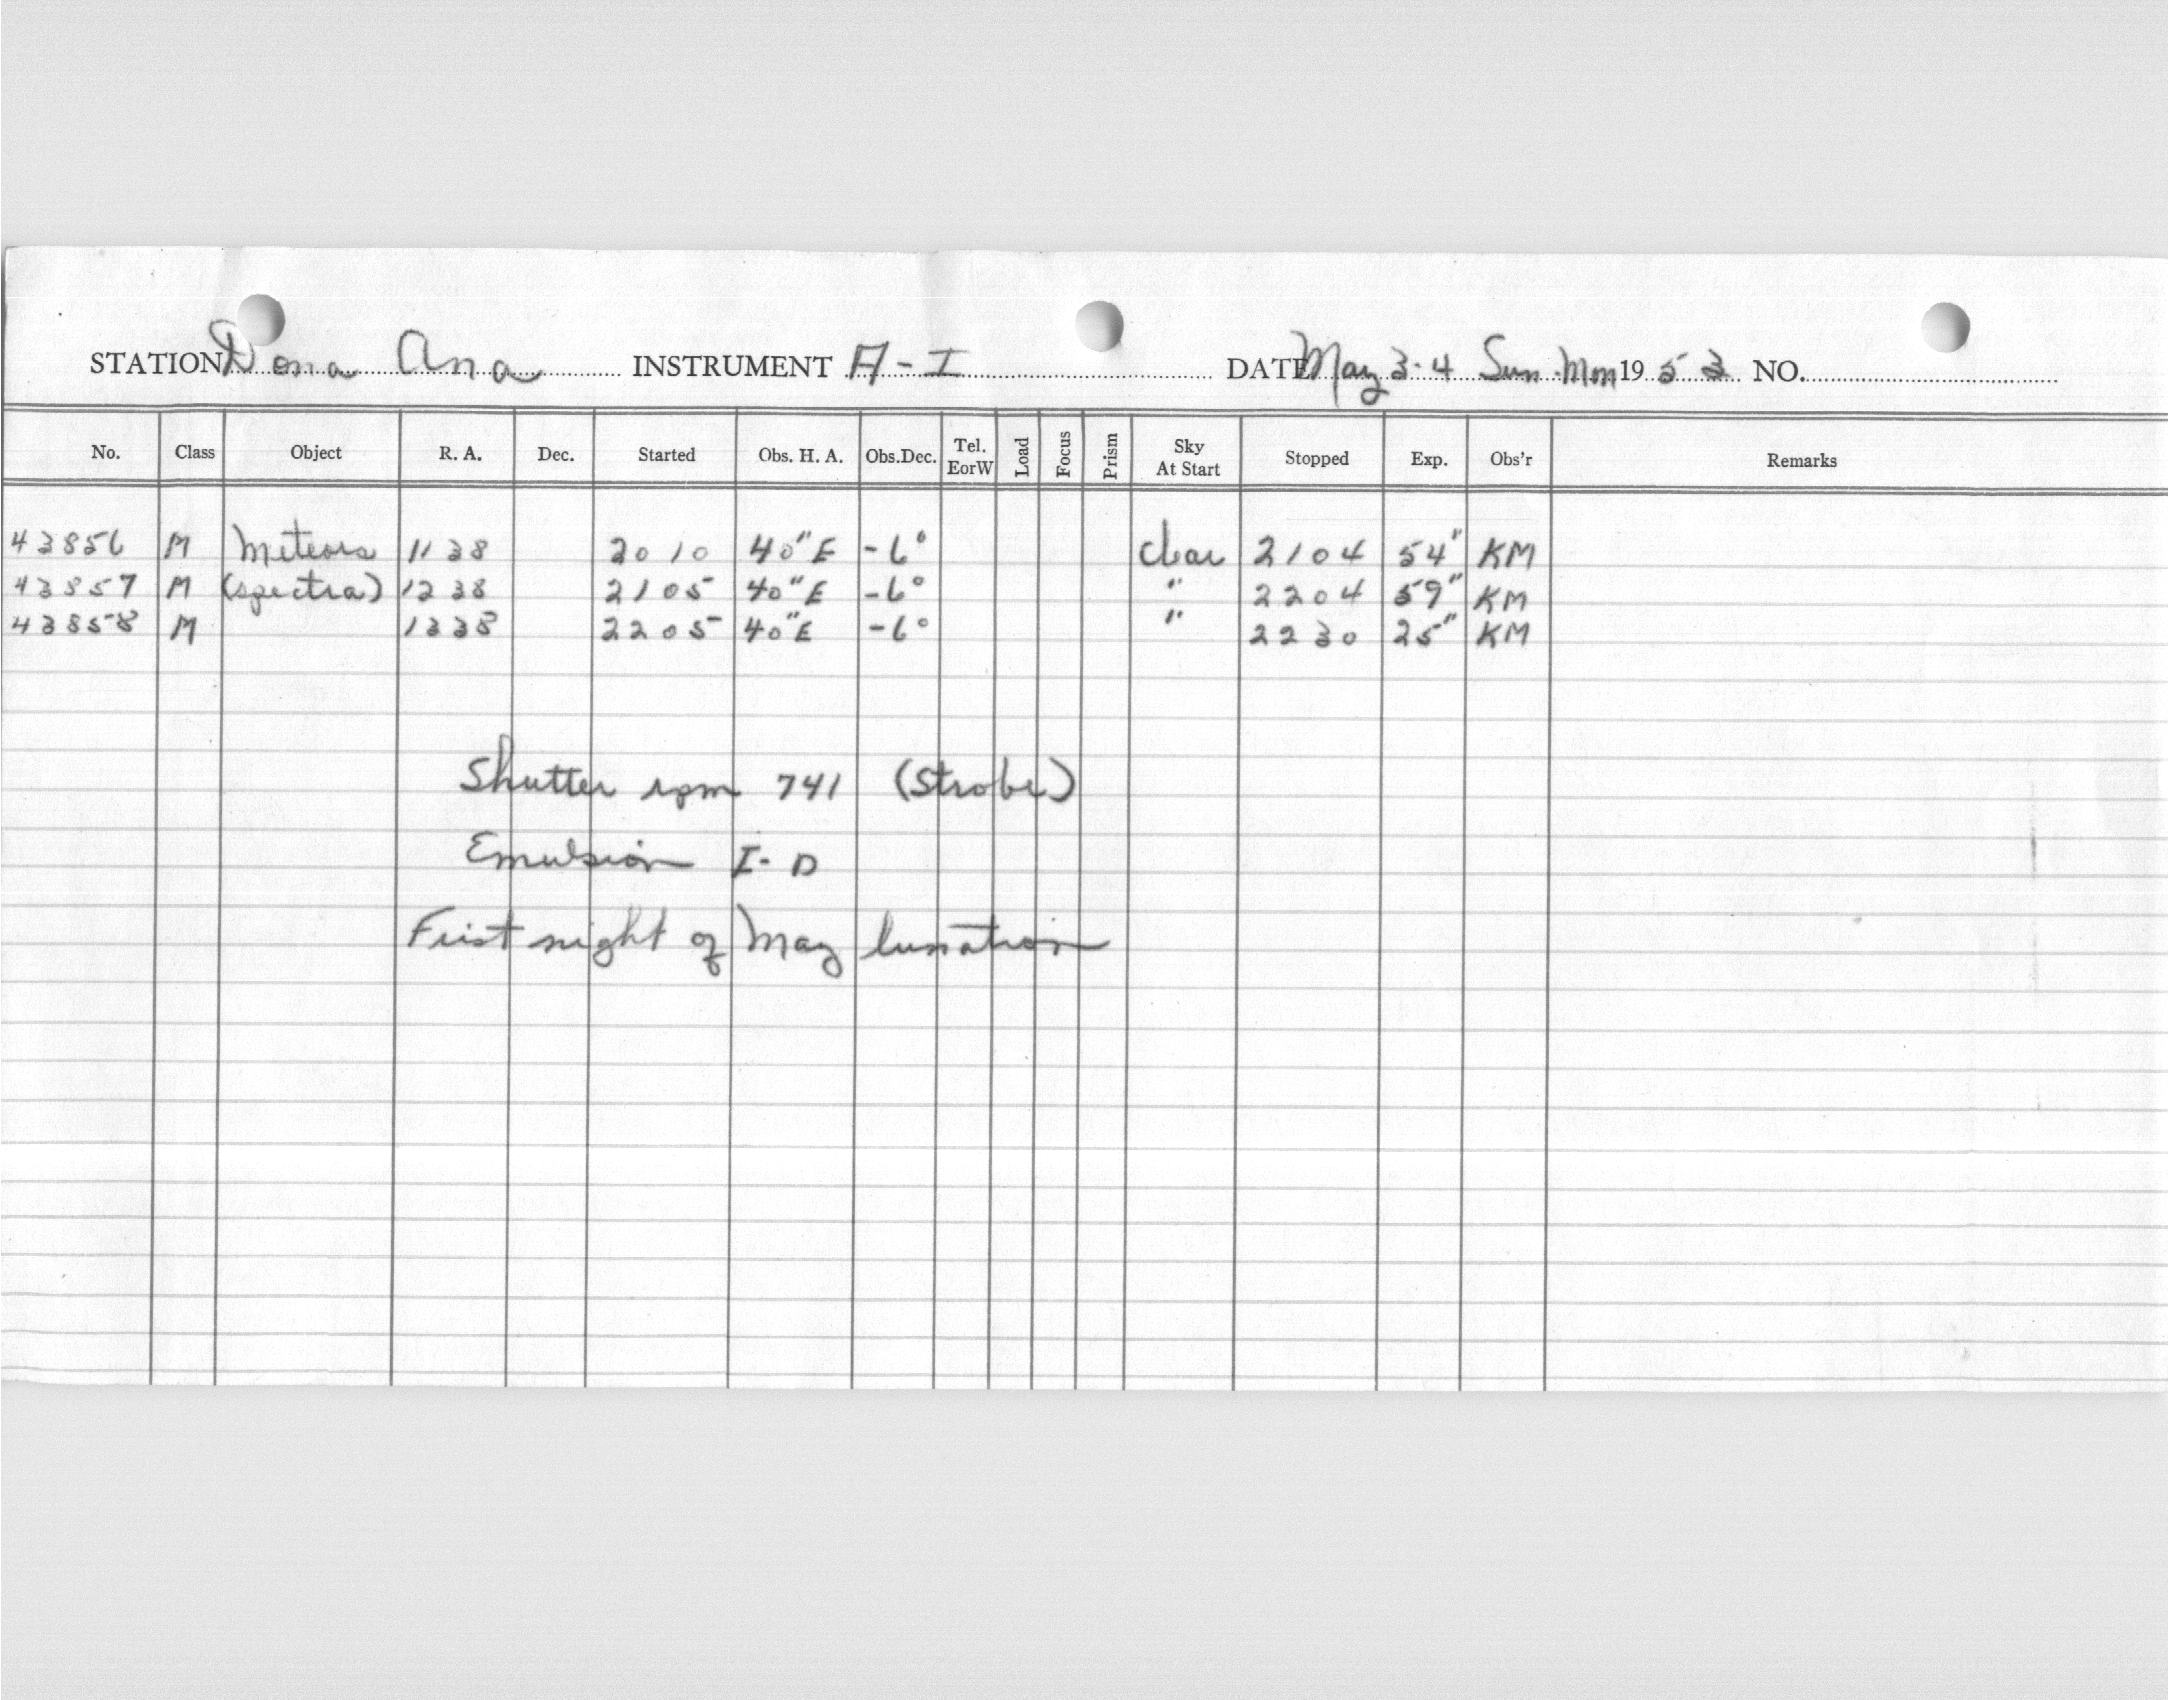 STATION Dona Ana INSTRUMENT A-I DATE May 3-4 Sun-Mon 1953 NO.
No. Class Object R. A. Dec. Started Obs. H. A. Obs.Dec. Tel. EorW Load Focus Prism Sky At Start Stopped Exp. Obs'r Remarks
43856 M Meteors 1138 2010 40" E -6° clear 2104 54" KM
43857 M (spectra) 1238 2105 40" E -6° " 2204 59" KM
43858 M 1338 2205 40" E -6° " 2230 25" KM
Shutter rpm 741 (Strobe)
Emulsion I-D
First night of May lunation